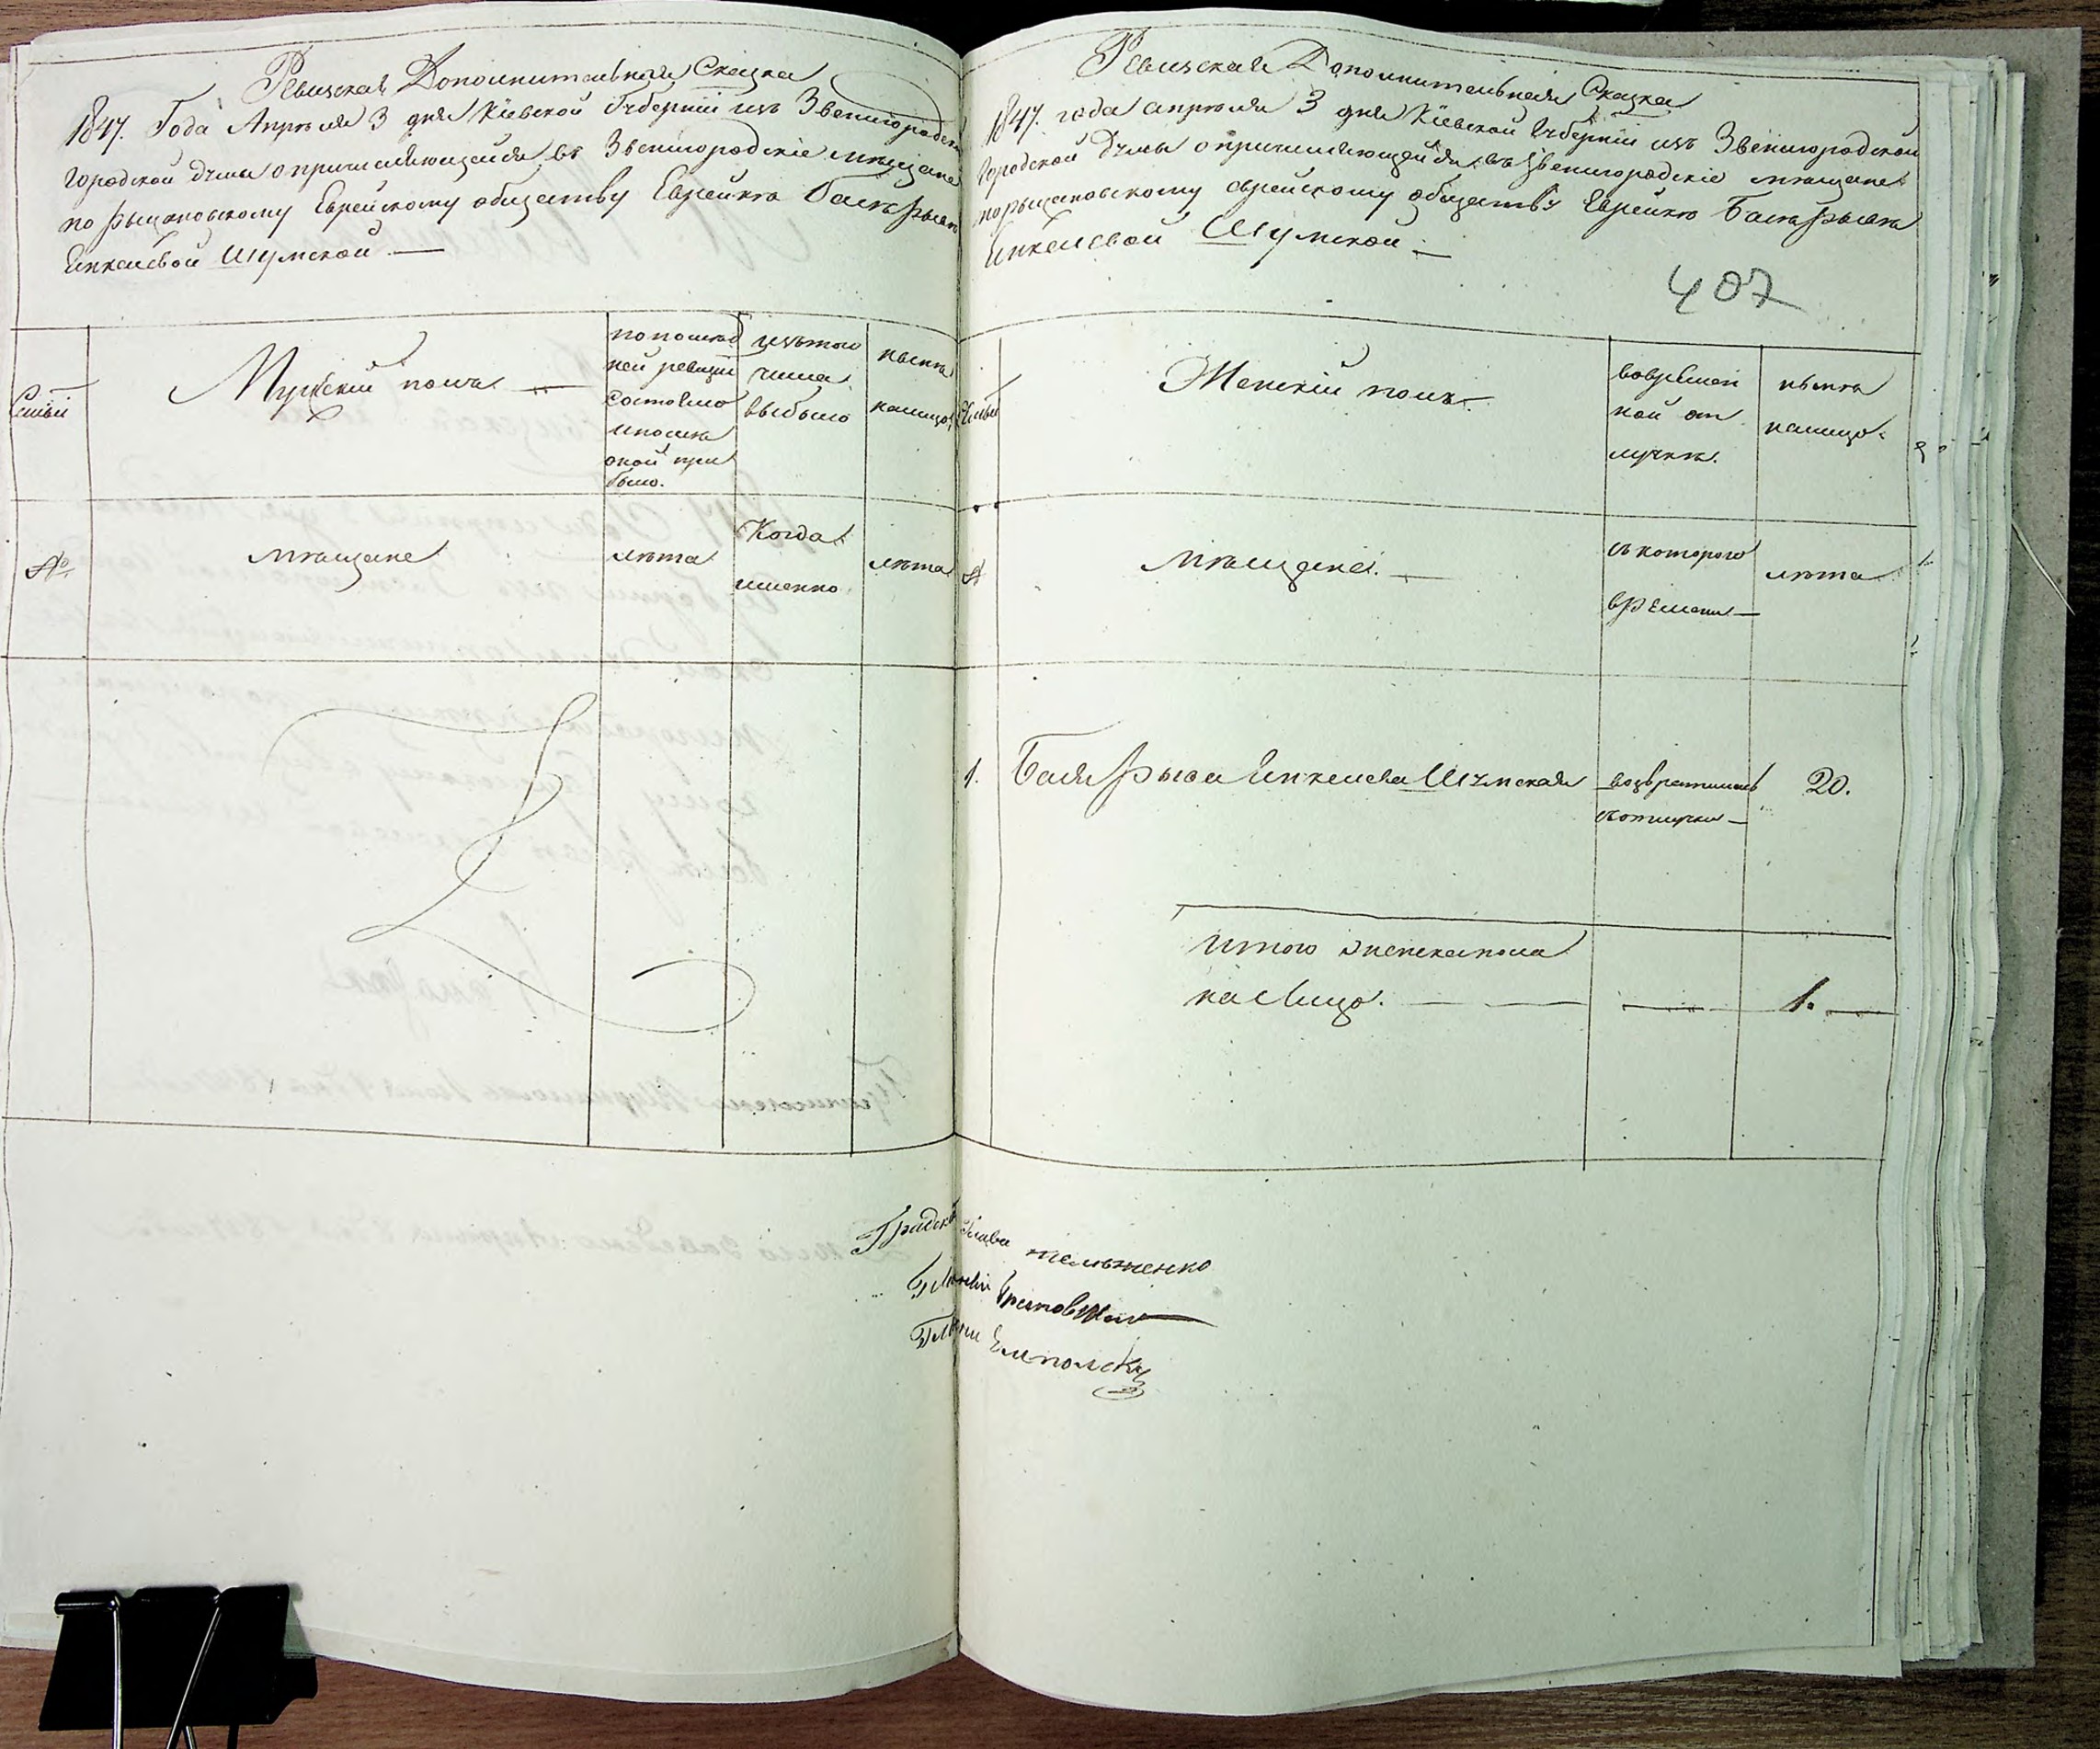 Ревизская Дополнительная Сказка
1847. Года Апреля 3 дня Кіевской Губерніи изъ Звенигородской
Городской Думы опричисляющейся въ Звенигородскіе мѣщане
по рыжановскому Еврейскому обществу Еврейкѣ Баси Рысѣ
Инкелевой Шумской —
Семьи
Мужскій полъ —
по послѣд
ней ревизіи
состояло
и послѣ
оной при
было.
изъ того
числа
выбыло
нынѣ
налицо
№
мѣщане
лѣта
Когда
именно
лѣта
Ревизская Дополнительная Сказка
1847. года апреля 3 дня Кіевской Губерніи изъ Звенигородской
Городской Думы опричисляющейся въ Звенигородскіе мѣщане
по рыжановскому еврейскому обществу Еврейкѣ Баси Рысѣ
Инкелевой Шумской —
407
Семьи
Женскій полъ.
во времен
ной от
лучкѣ.
нынѣ
налицо.
№
мѣщане. —
съ которого
времени —
лѣта
1. Бася Рыся Инкелева Шумская возвратилась 20.
изъ отлучки —
Итого женска пола
на лицо. — — — 1. —
Градскій Глава Мельженко
Гласный
Гласный